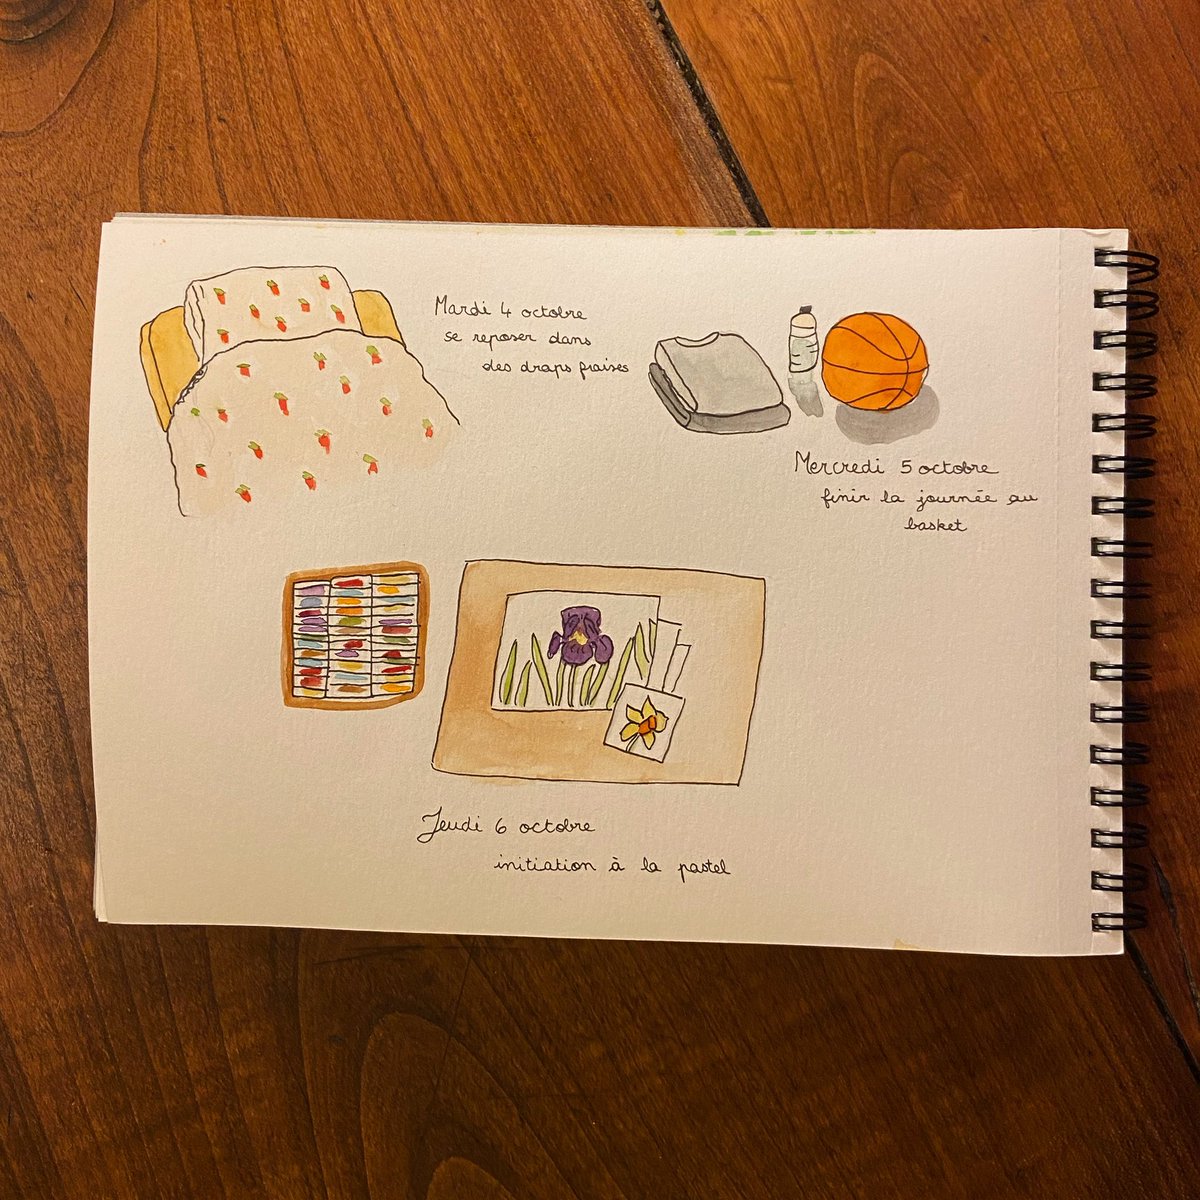 Mardi 4 octobre
se reposer dans
des draps fraises
Mercredi 5 octobre
finir la journée au
basket
Jeudi 6 octobre
initiation à la pastel